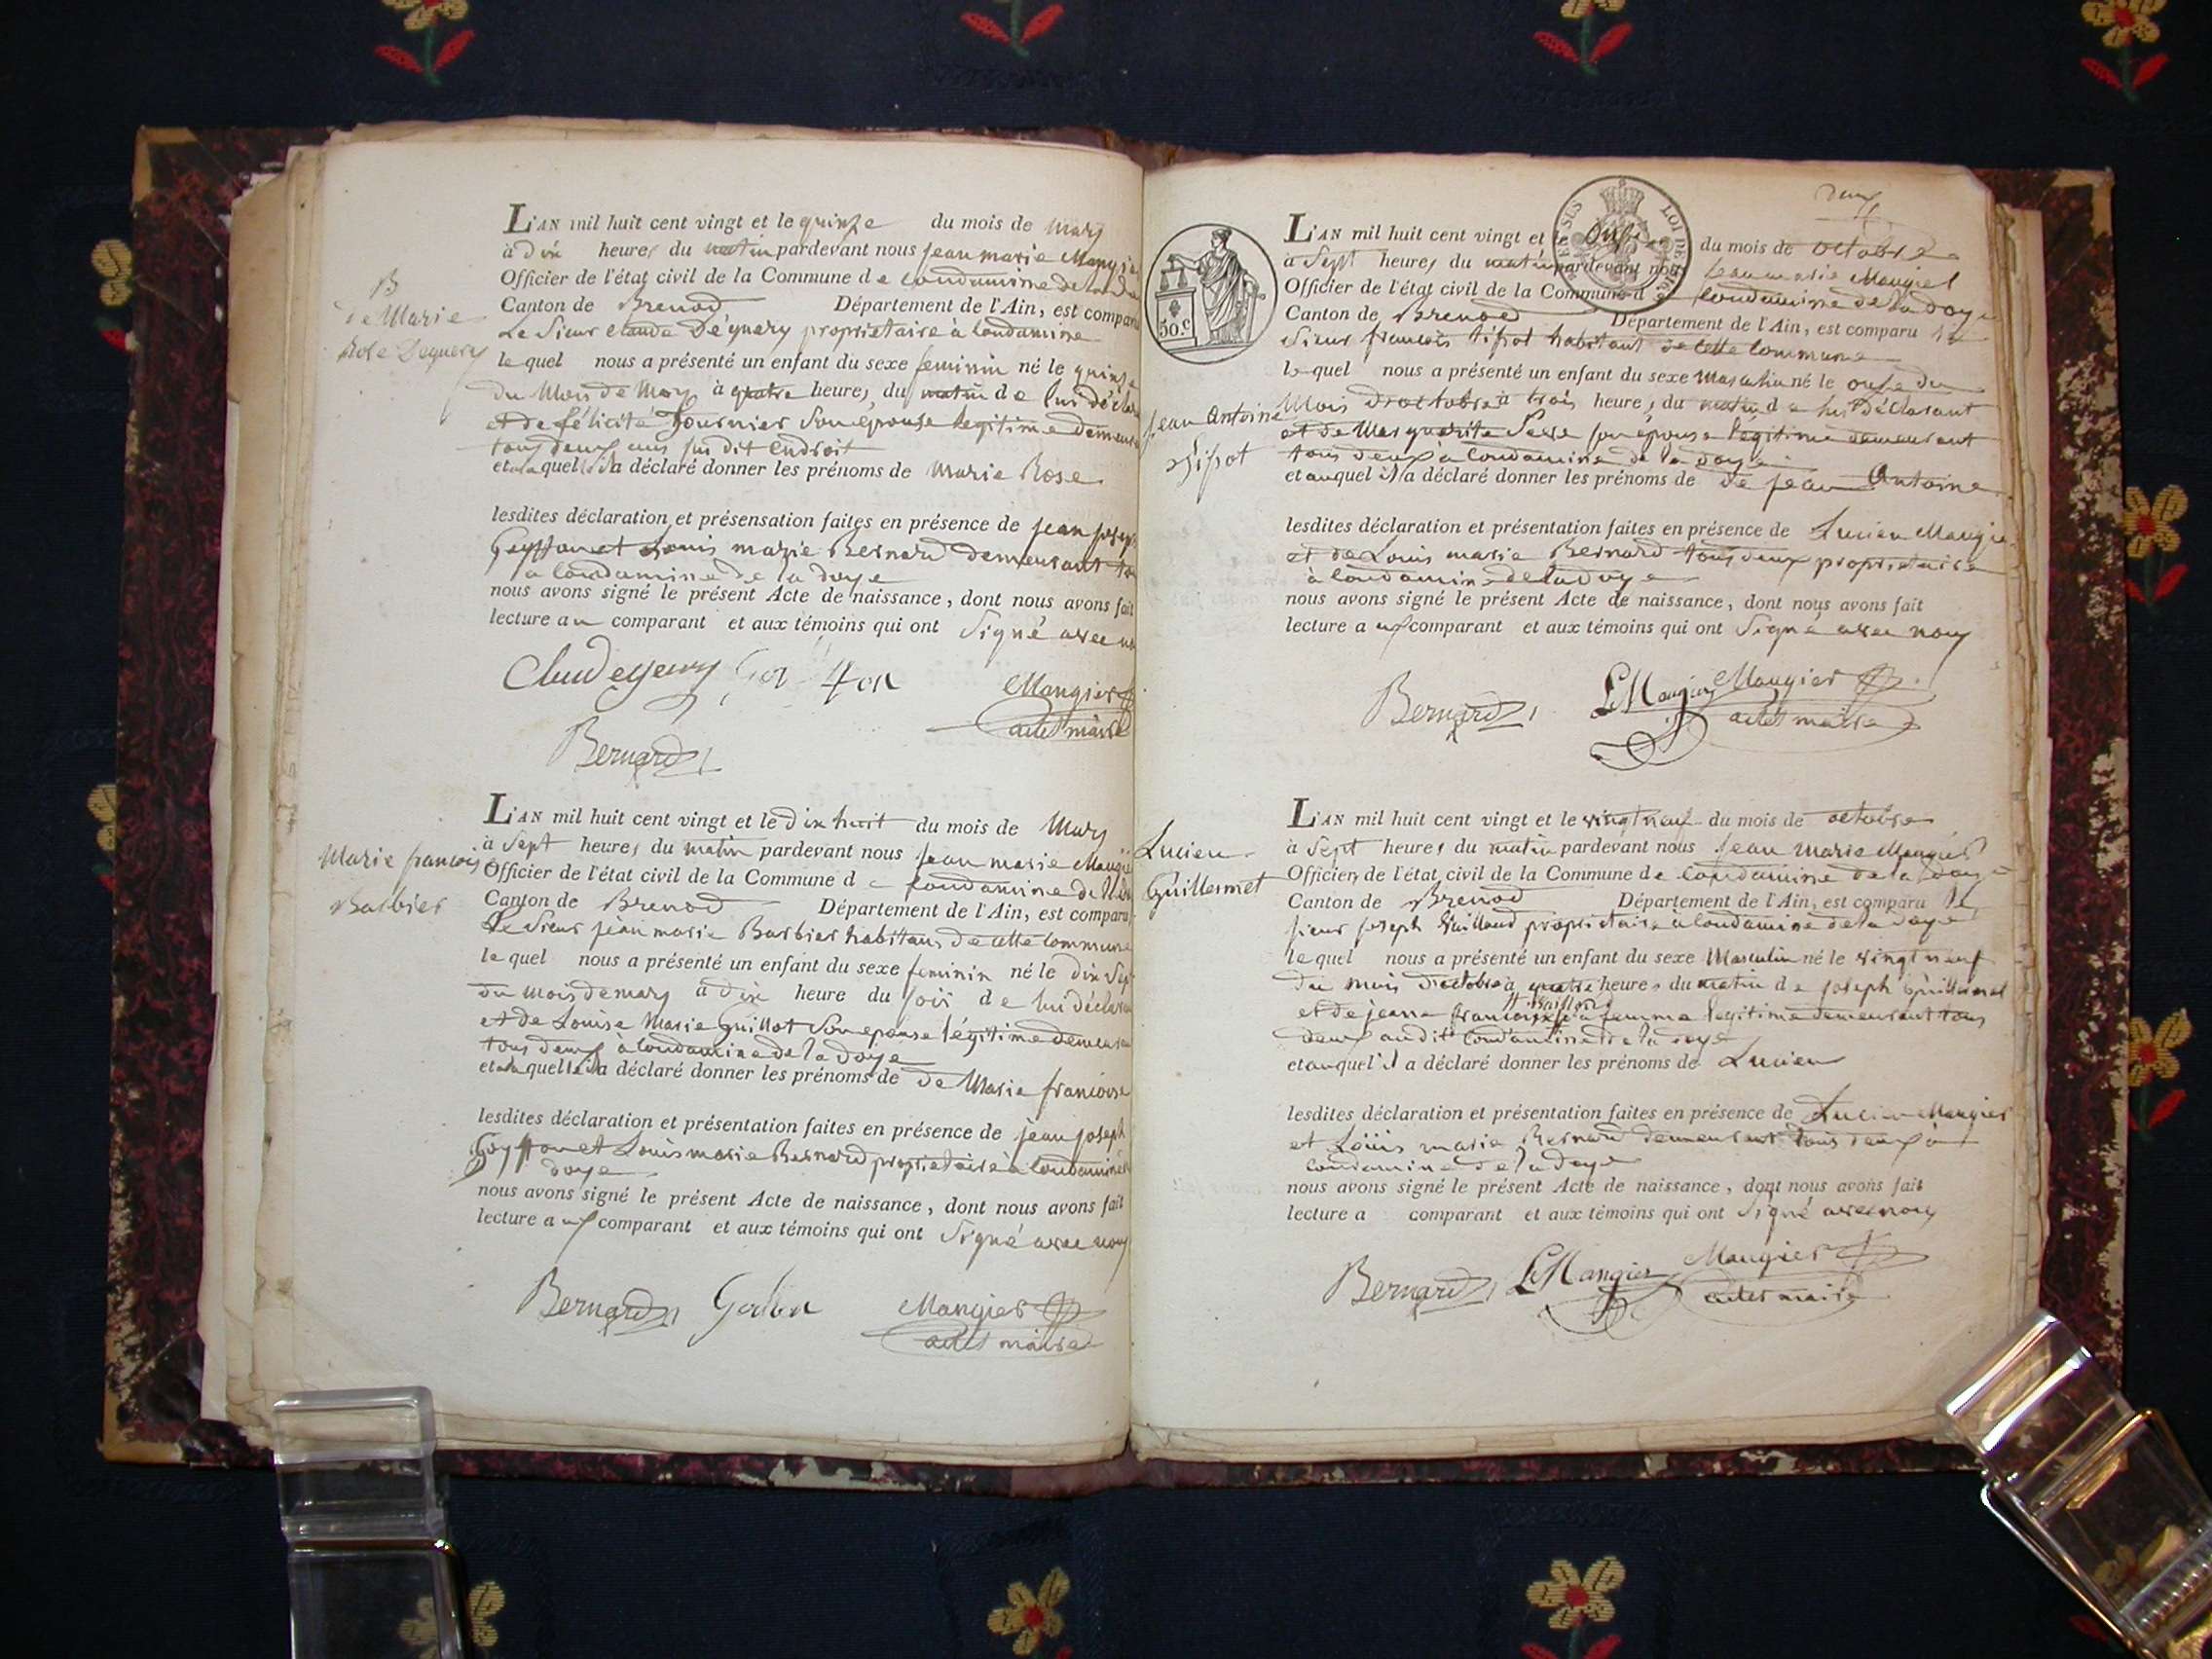 B
de Marie
Rose Dequery
L'AN mil huit cent vingt et le quinze du mois de mars
à dix heures du matin pardevant nous jean marie Mangie
Officier de l'état civil de la Commune de Condamine de la
Canton de Brenod Département de l'Ain, est comparu
Le Sieur claude Déquery proprietaire à Condamine
lequel nous a présenté un enfant du sexe feminin né le quinze
du Mois de Mars à quatre heures du matin de lui déclar
et de félicité Tournier Son epouse legitime demeura
tous deux au sus dit Endroit
et a laquelle il a déclaré donner les prénoms de Marie Rose
lesdites déclaration et présensation faites en présence de jean josep
et Louis marie Bernard demeurant to
a Condamine de la doye
nous avons signé le présent Acte de naissance, dont nous avons fait
lecture au comparant et aux témoins qui ont Signé avec no
Mangier
adet maire
Bernard
Marie francois
Barbier
L'AN mil huit cent vingt et le dix huit du mois de Mars
à Sept heures du matin pardevant nous jean marie Mangie
Officier de l'état civil de la Commune de Condamine de la
Canton de Brenod Département de l'Ain, est comparu
Le Sieur jean marie Barbier habitans de cette Commune
lequel nous a présenté un enfant du sexe feminin né le dix Sept
du mois de mars à dix heure du soir de lui déclaran
et de Louise Marie Guillot Son epouse légitime demeura
tous deux à Condamine de la doye
et a laquelle il a déclaré donner les prénoms de de Marie francoise
lesdites déclaration et présentation faites en présence de jean joseph
et Louis marie Bernard proprietaire à Condamine
doye
nous avons signé le présent Acte de naissance, dont nous avons fait
lecture aux comparant et aux témoins qui ont Signé avec nous
Bernard Mangier
adet maire
deux
50.c
LOI DE
L'AN mil huit cent vingt et le onze du mois de octobre
à Sept heures du matin pardevant nous jean marie Mangier
Officier de l'état civil de la Commune de Condamine de la doye
Canton de Brenod Département de l'Ain, est comparu le
Sieur francois tipot habitant de cette Commune
lequel nous a présenté un enfant du sexe Masculin né le onze du
jean Antoine
Tipot
Mois d'octobre à trois heures du matin de lui déclarant
et de Marguerite son épouse légitime demeurant
tous deux à Condamine de la doye
et auquel il a déclaré donner les prénoms de de jean Antoine
lesdites déclaration et présentation faites en présence de Lucien Mangie
et de Louis marie Bernard tous deux proprietaire
à Condamine de la doye
nous avons signé le présent Acte de naissance, dont nous avons fait
lecture aux comparant et aux témoins qui ont Signé avec nous
Bernard LMangier Mangier
adet maire
Lucien
Guillermet
L'AN mil huit cent vingt et le vingt neuf du mois de octobre
à Sept heures du matin pardevant nous jean marie Mangier
Officier de l'état civil de la Commune de Condamine de la doye
Canton de Brenod Département de l'Ain, est comparu le
sieur joseph proprietaire à Condamine de la doye
lequel nous a présenté un enfant du sexe Masculin né le vingt neuf
du mois d'octobre à quatre heures du matin de joseph Guillermet
et de jeanne francoise sa femme legitime demeurant tous
deux au dit Condamine de la doye
et auquel il a déclaré donner les prénoms de Lucien
lesdites déclaration et présentation faites en présence de Lucien Mangier
et Loüis marie Bernard demeurant tous deux à
Condamine de la doye
nous avons signé le présent Acte de naissance, dont nous avons fait
lecture a comparant et aux témoins qui ont Signé avec nous
Bernard LMangier Mangier
adet maire